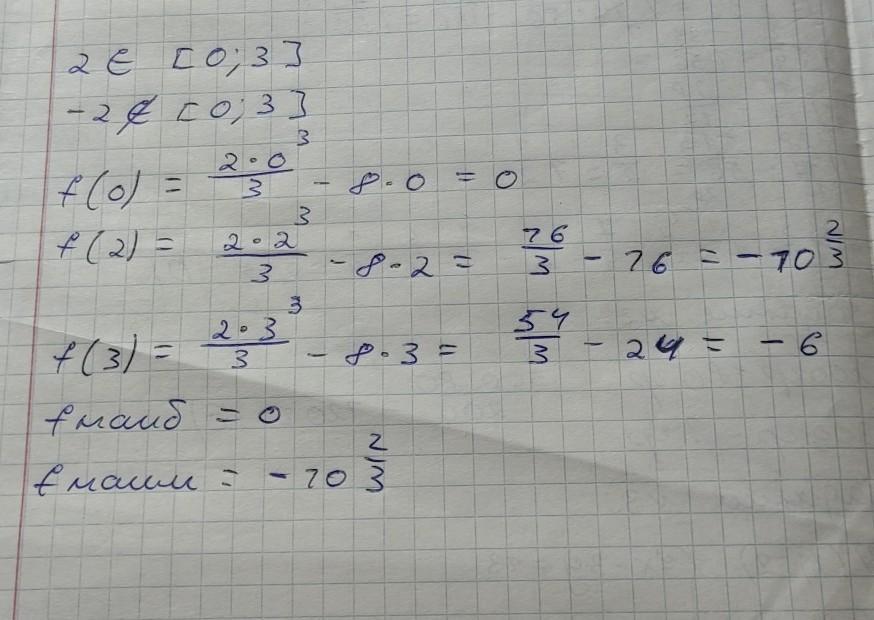 2 ∈ [0;3]
-2 ∉ [0;3]
f(0) = \frac{2·0^3}{3} - 8·0 = 0
f(2) = \frac{2·2^3}{3} - 8·2 = \frac{16}{3} - 16 = -10\frac{2}{3}
f(3) = \frac{2·3^3}{3} - 8·3 = \frac{54}{3} - 24 = -6
fнаиб = 0
fнаим = -10\frac{2}{3}